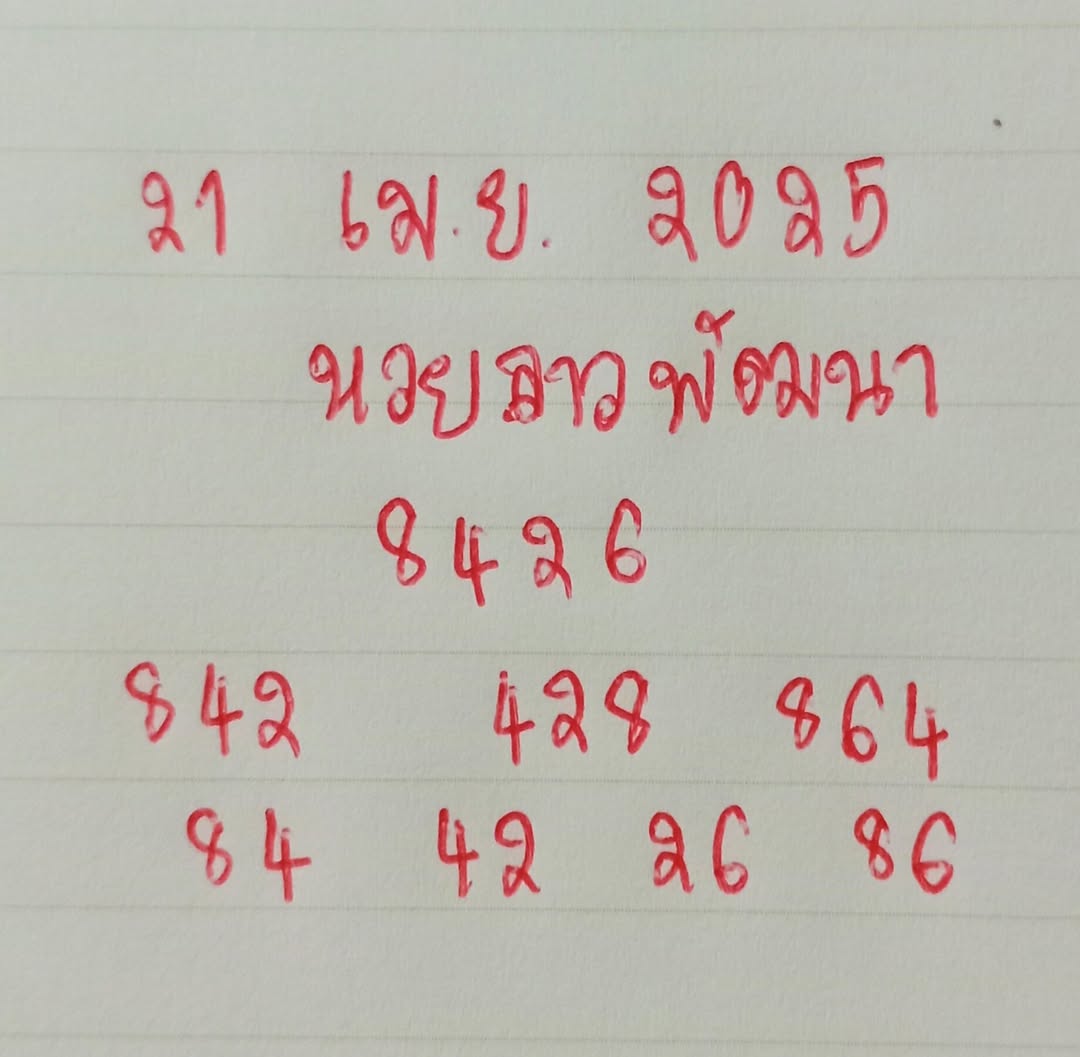 21 เม.ย. 2025
หวยลาวพัฒนา
8426
842 428 864
84 42 26 86